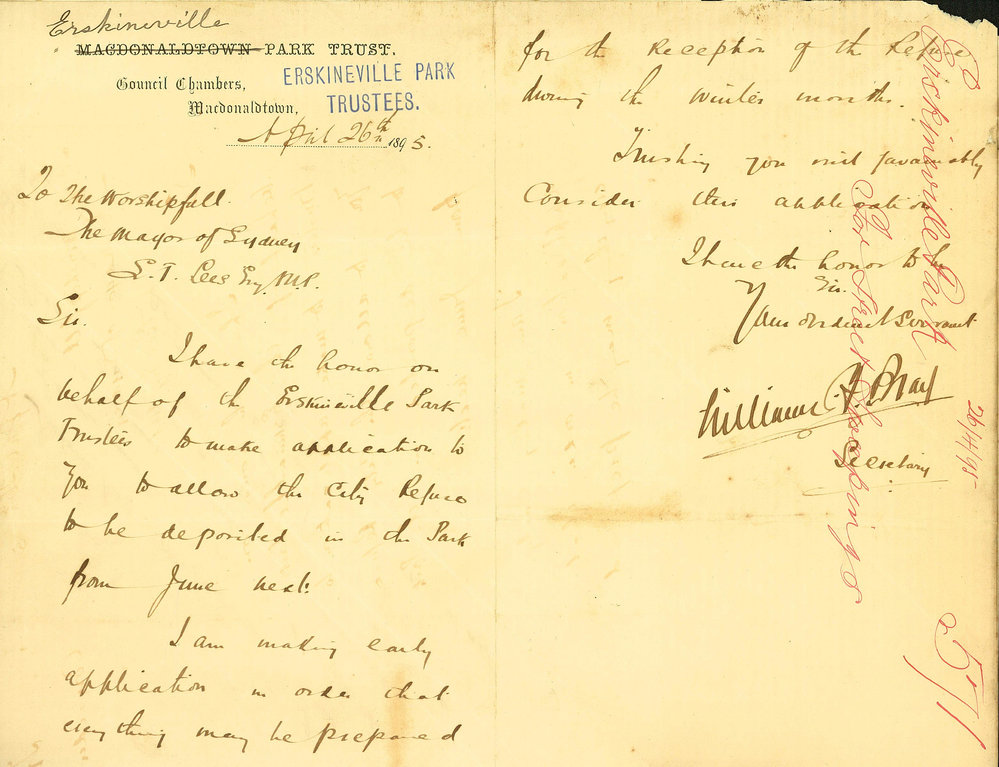 Erskineville
MACDONALDTOWN PARK TRUST.
Council Chambers,
Macdonaldtown,
ERSKINEVILLE PARK
TRUSTEES.
April 26th 1895.
To The Worshipfull
The Mayor of Sydney
S. T. Lees Esq. M.P.
Sir.
I have the honor on
behalf of the Erskineville Park
Trustees to make application to
you to allow the City Refuse
to be deposited in the Park
from June next.
I am making early
application in order that
everything may be prepared
for the Reception of the Refuse
during the winter months.
Trusting you will favourably
Consider this application
I have the honor to be
Sir.
Your obedient Servant
William
Secretary
Erskineville Park
For Street Sweepings
26/4/95